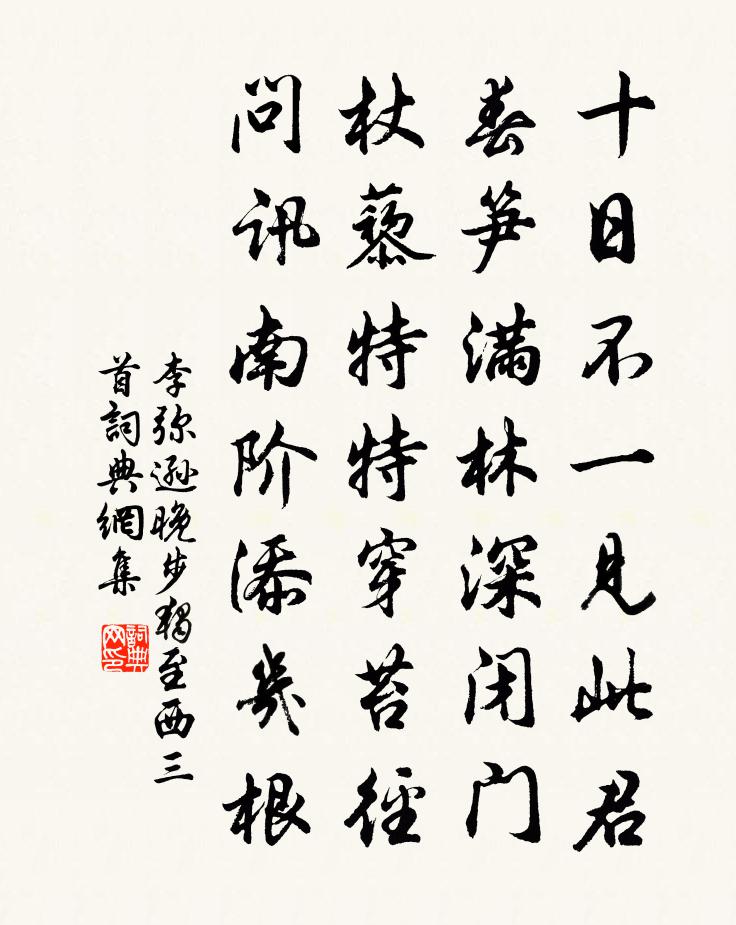 十日不一见此君
春笋满林深闭门
杖藜特特穿苔径
问讯南阶添几根
李弥逊晚步独至西三
首詞典網集
詞典
网印